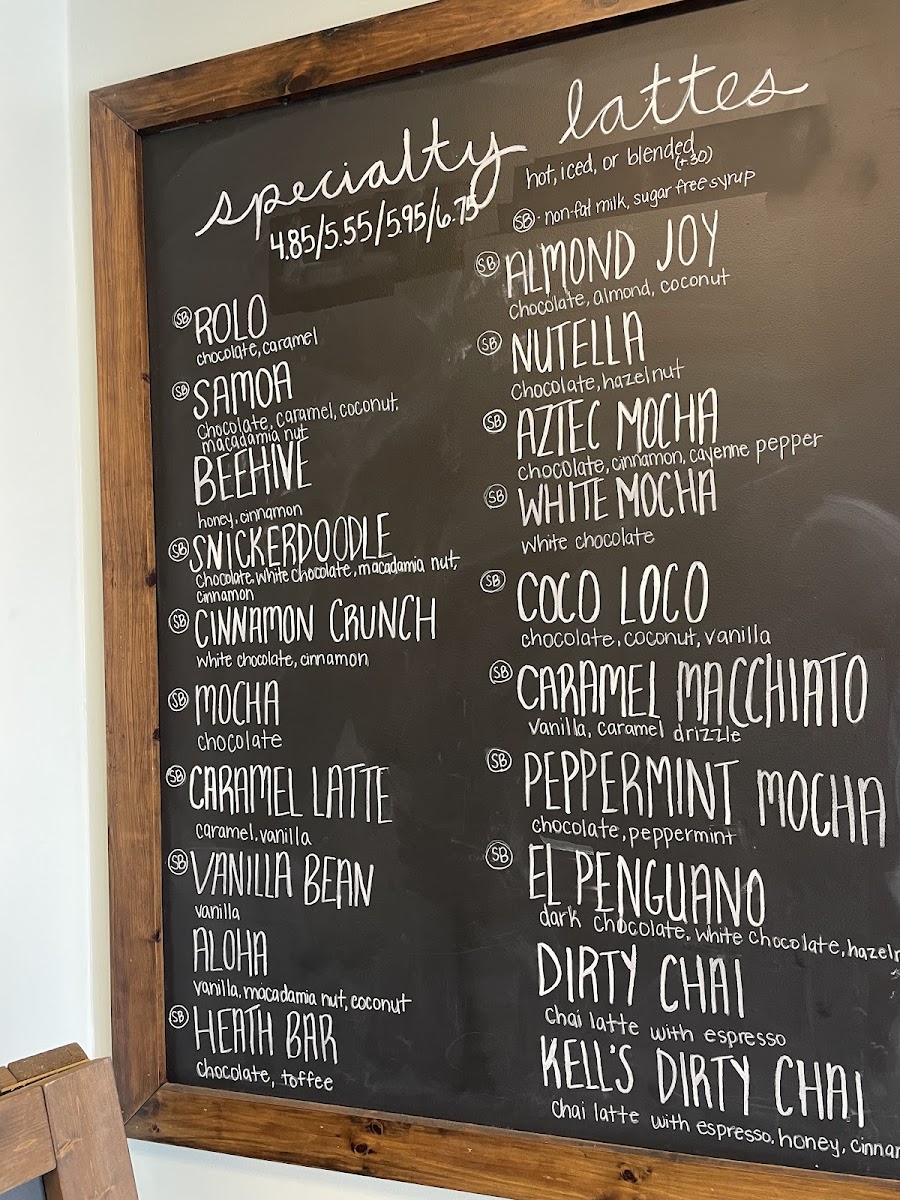 specialty lattes
4.85/5.55/5.95/6.75
hot, iced, or blended
(+.30)
SB - non-fat milk, sugar free syrup
SB ROLO
chocolate, caramel
SB SAMOA
chocolate, caramel, coconut,
macadamia nut
BEEHIVE
honey, cinnamon
SB SNICKERDOODLE
chocolate, white chocolate, macadamia nut,
cinnamon
SB CINNAMON CRUNCH
white chocolate, cinnamon
SB MOCHA
chocolate
SB CARAMEL LATTE
caramel, vanilla
SB VANILLA BEAN
vanilla
ALOHA
vanilla, macadamia nut, coconut
SB HEATH BAR
chocolate, toffee
SB ALMOND JOY
chocolate, almond, coconut
SB NUTELLA
chocolate, hazelnut
SB AZTEC MOCHA
chocolate, cinnamon, cayenne pepper
SB WHITE MOCHA
white chocolate
SB COCO LOCO
chocolate, coconut, vanilla
SB CARAMEL MACCHIATO
vanilla, caramel drizzle
SB PEPPERMINT MOCHA
chocolate, peppermint
SB EL PENGUANO
dark chocolate, white chocolate,
DIRTY CHAI
chai latte with espresso
KELL'S DIRTY CHAI
chai latte with espresso, honey,